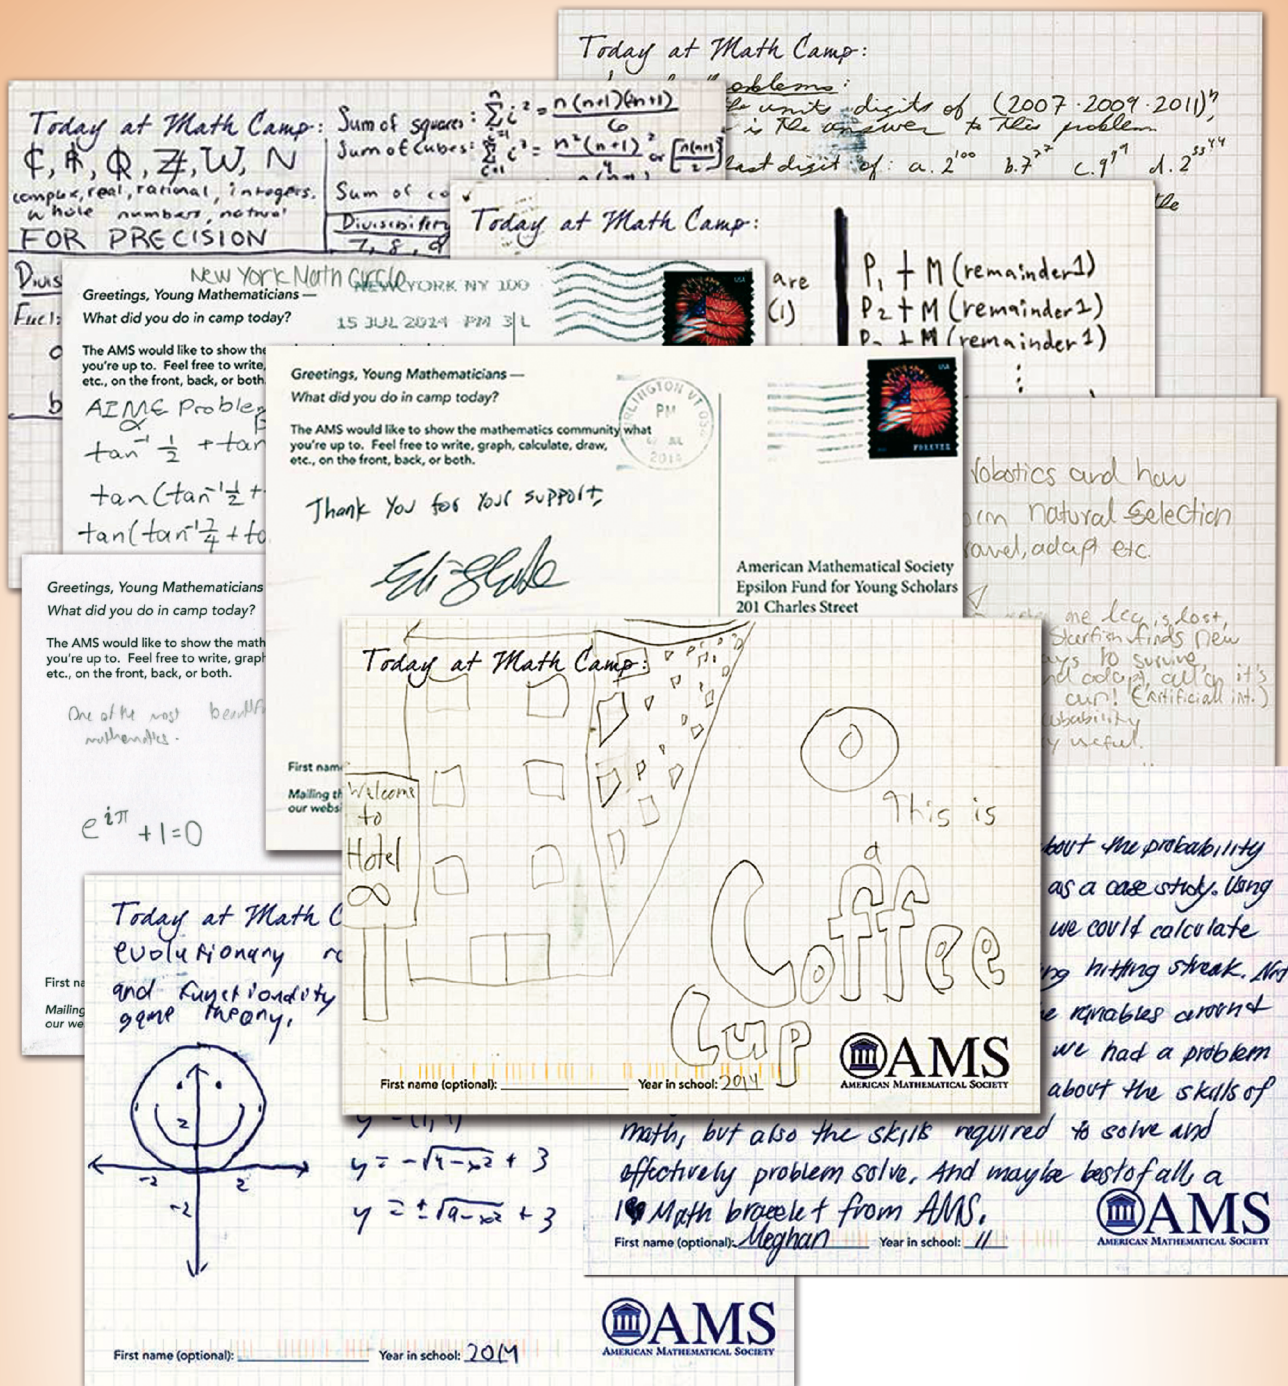 Today at Math Camp:
oblems:
units digits of (2007·2009·2011)ⁿ,
is the answer to this problem.
last digit of: a. 2¹⁰⁰ b. 7²² c. 9⁹⁹ d. 2⁵⁵⁴⁴
the
Today at Math Camp:
ℂ, ℝ, ℚ, ℤ, W, N
complex, real, rational, integers.
whole numbers, natural
FOR PRECISION
Sum of squares: Σ i² = n(n+1)(2n+1)/6
Sum of cubes: Σ i³ = n²(n+1)²/4 or [n(n+1)/2]
Sum of co
Divisibility
7, 8, 9
Divis
Today at Math Camp:
are
(1)
P₁ + M (remainder 1)
P₂ + M (remainder 1)
M (remainder 1)
New York Math Circle
NEW YORK NY 100
15 JUL 2014 PM 3 L
USA
Greetings, Young Mathematicians —
What did you do in camp today?
The AMS would like to show the
you're up to. Feel free to write,
etc., on the front, back, or both
AIME Proble
α
tan⁻¹ 1/2 + tan
tan(tan⁻¹ 1/2 +
tan(tan⁻¹ 7/4 + ta
Greetings, Young Mathematicians —
What did you do in camp today?
The AMS would like to show the mathematics community what
you're up to. Feel free to write, graph, calculate, draw,
etc., on the front, back, or both.
RLINGTON VT
PM
JUL
2014
USA
FOREVER
Thank You for Your support,
American Mathematical Society
Epsilon Fund for Young Scholars
201 Charles Street
First nam
Mailing th
our webs
robotics and how
natural selection
ravel, adapt etc.
one leg is lost,
Starfish finds new
ays to survive,
nd adapt, all on it's
own! (Artificial int.)
obability
y useful.
Greetings, Young Mathematicians
What did you do in camp today?
The AMS would like to show the math
you're up to. Feel free to write, graph
etc., on the front, back, or both.
One of the most beautif
mathematics.
e^{iπ} + 1 = 0
First na
Mailing
our we
Today at Math Camp:
Welcome
to
Hotel
∞
This is
a
Coffee
Cup
First name (optional):
Year in school: 2014
AMS
AMERICAN MATHEMATICAL SOCIETY
bout the probability
as a case study. Using
we could calculate
ng hitting streak. Not
e variables around
we had a problem
about the skills of
math, but also the skills required to solve and
effectively problem solve. And maybe best of all, a
Math bracelet from AMS.
First name (optional): Meghan
Year in school: 11
AMS
AMERICAN MATHEMATICAL SOCIETY
Today at Math C
evolutionary ro
and functiondity
game theory.
2
-2 2
-2
y = -√4-x² + 3
y = ±√9-x² + 3
First name (optional):
Year in school: 2014
AMS
AMERICAN MATHEMATICAL SOCIETY